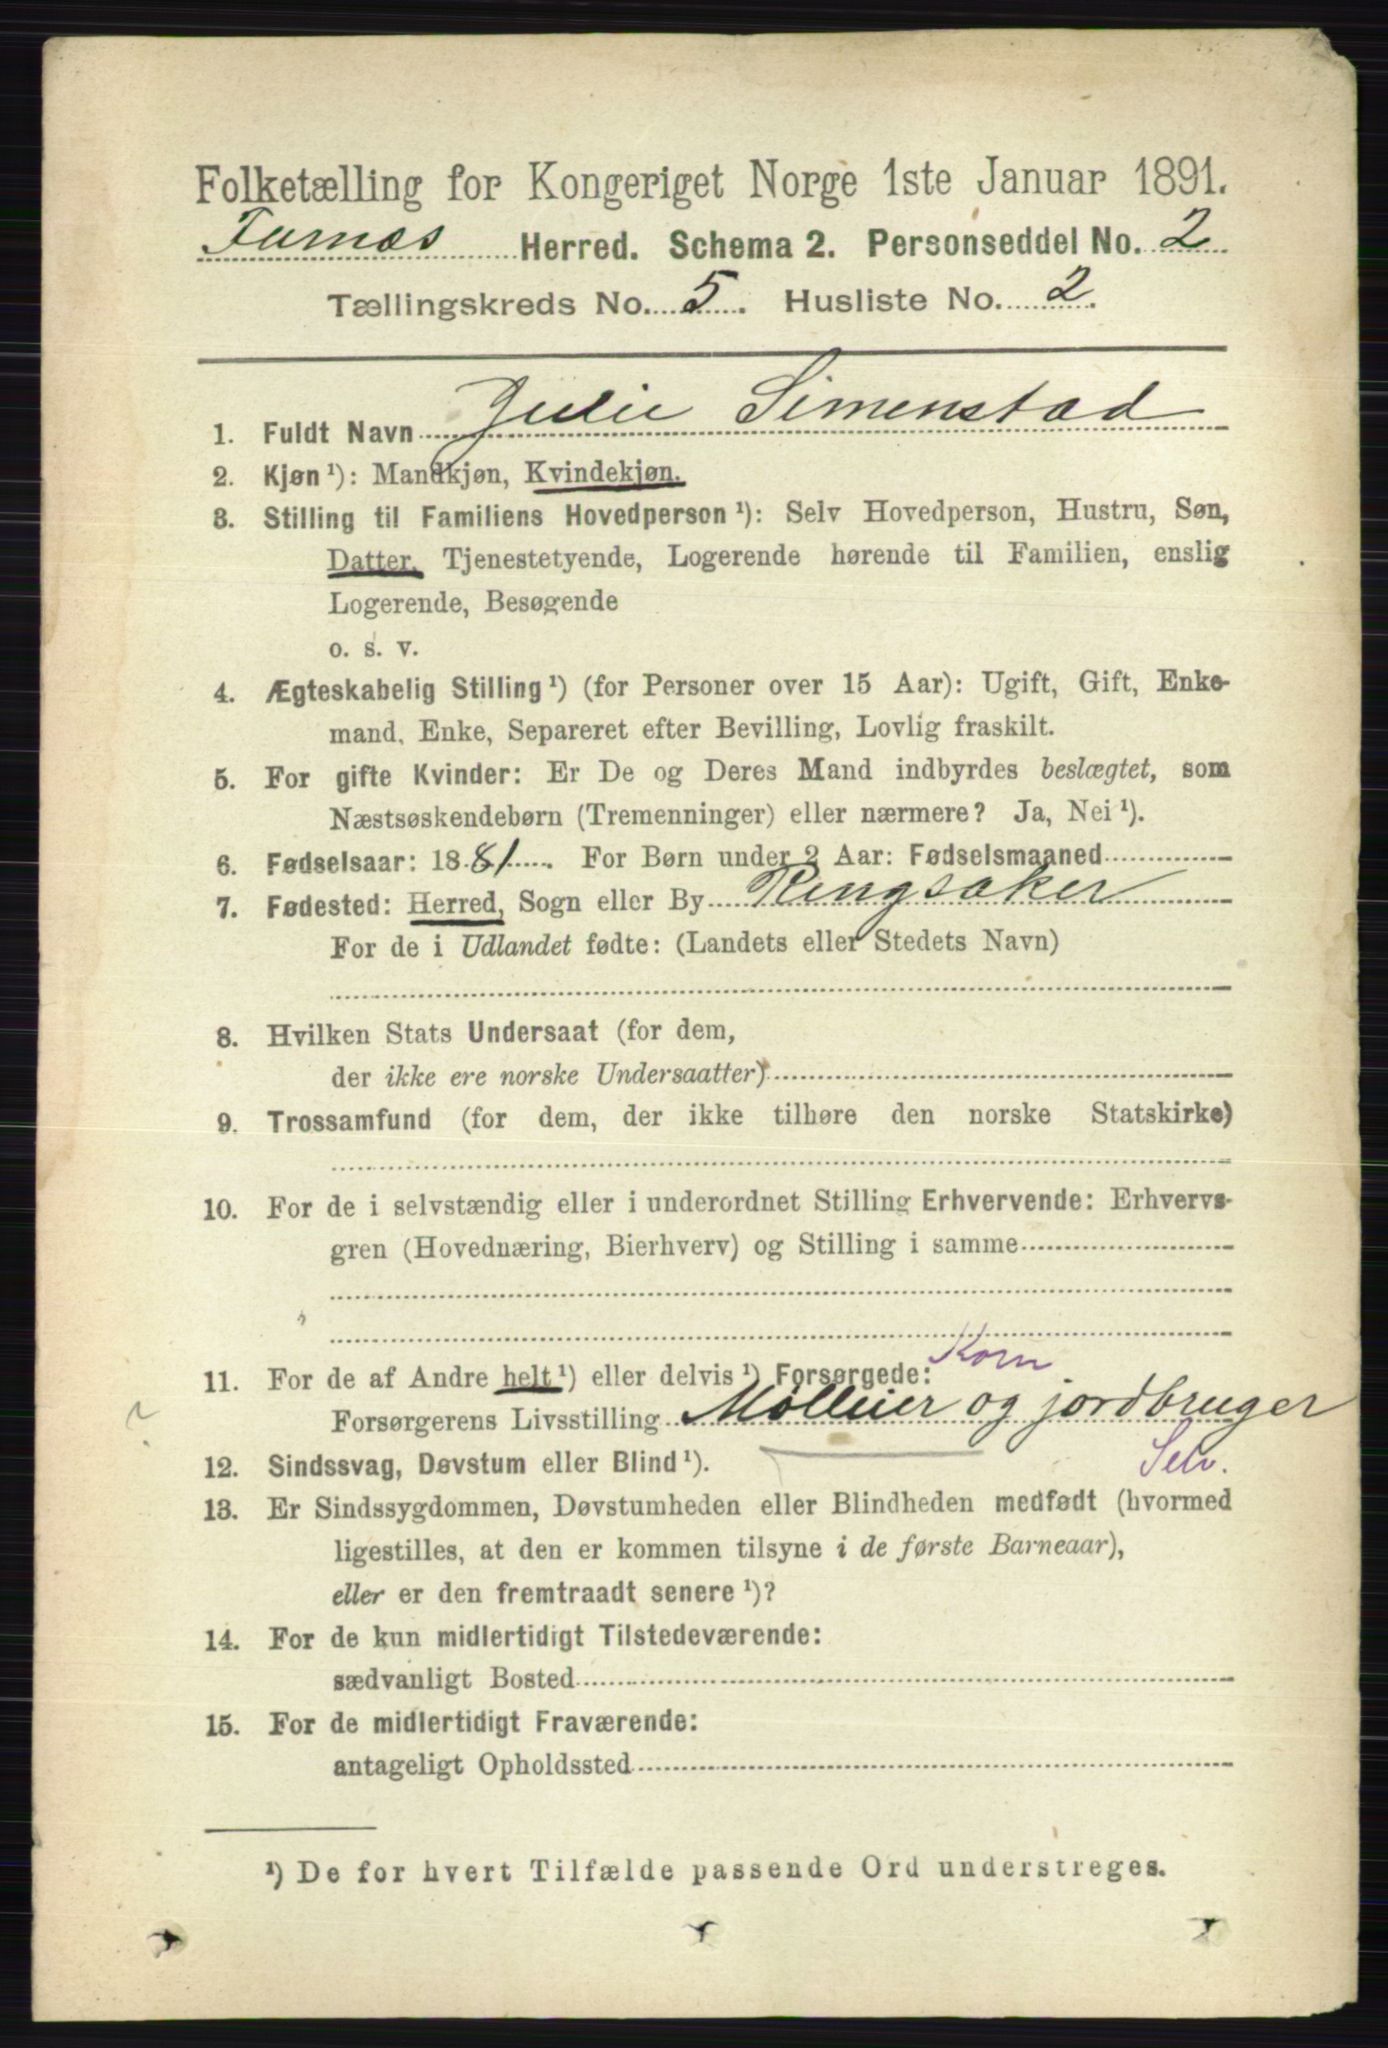 Folketælling for Kongeriget Norge 1ste Januar 1891.
Furnæs Herred. Schema 2. Personseddel No. 2
Tællingskreds No. 5. Husliste No. 2.
1. Fuldt Navn Julie Simenstad
2. Kjøn¹): Mandkjøn, Kvindekjøn.
3. Stilling til Familiens Hovedperson¹): Selv Hovedperson, Hustru, Søn,
Datter, Tjenestetyende, Logerende hørende til Familien, enslig
Logerende, Besøgende
o. s. v.
4. Ægteskabelig Stilling¹) (for Personer over 15 Aar): Ugift, Gift, Enke-
mand, Enke, Separeret efter Bevilling, Lovlig fraskilt.
5. For gifte Kvinder: Er De og Deres Mand indbyrdes beslægtet, som
Næstsøskendebørn (Tremenninger) eller nærmere? Ja, Nei¹).
6. Fødselsaar: 1881. For Børn under 2 Aar: Fødselsmaaned
7. Fødested: Herred, Sogn eller By Ringsaker
For de i Udlandet fødte: (Landets eller Stedets Navn)
8. Hvilken Stats Undersaat (for dem,
der ikke ere norske Undersaatter)
9. Trossamfund (for dem, der ikke tilhøre den norske Statskirke)
10. For de i selvstændig eller i underordnet Stilling Erhvervende: Erhvervs-
gren (Hovednæring, Bierhverv) og Stilling i samme
Korn
11. For de af Andre helt¹) eller delvis¹) Forsørgede:
Forsørgerens Livsstilling Mølleier og jordbruger
Selv.
12. Sindssvag, Døvstum eller Blind¹).
13. Er Sindssygdommen, Døvstumheden eller Blindheden medfødt (hvormed
ligestilles, at den er kommen tilsyne i de første Barneaar),
eller er den fremtraadt senere¹)?
14. For de kun midlertidigt Tilstedeværende:
sædvanligt Bosted
15. For de midlertidigt Fraværende:
antageligt Opholdssted
¹) De for hvert Tilfælde passende Ord understreges.